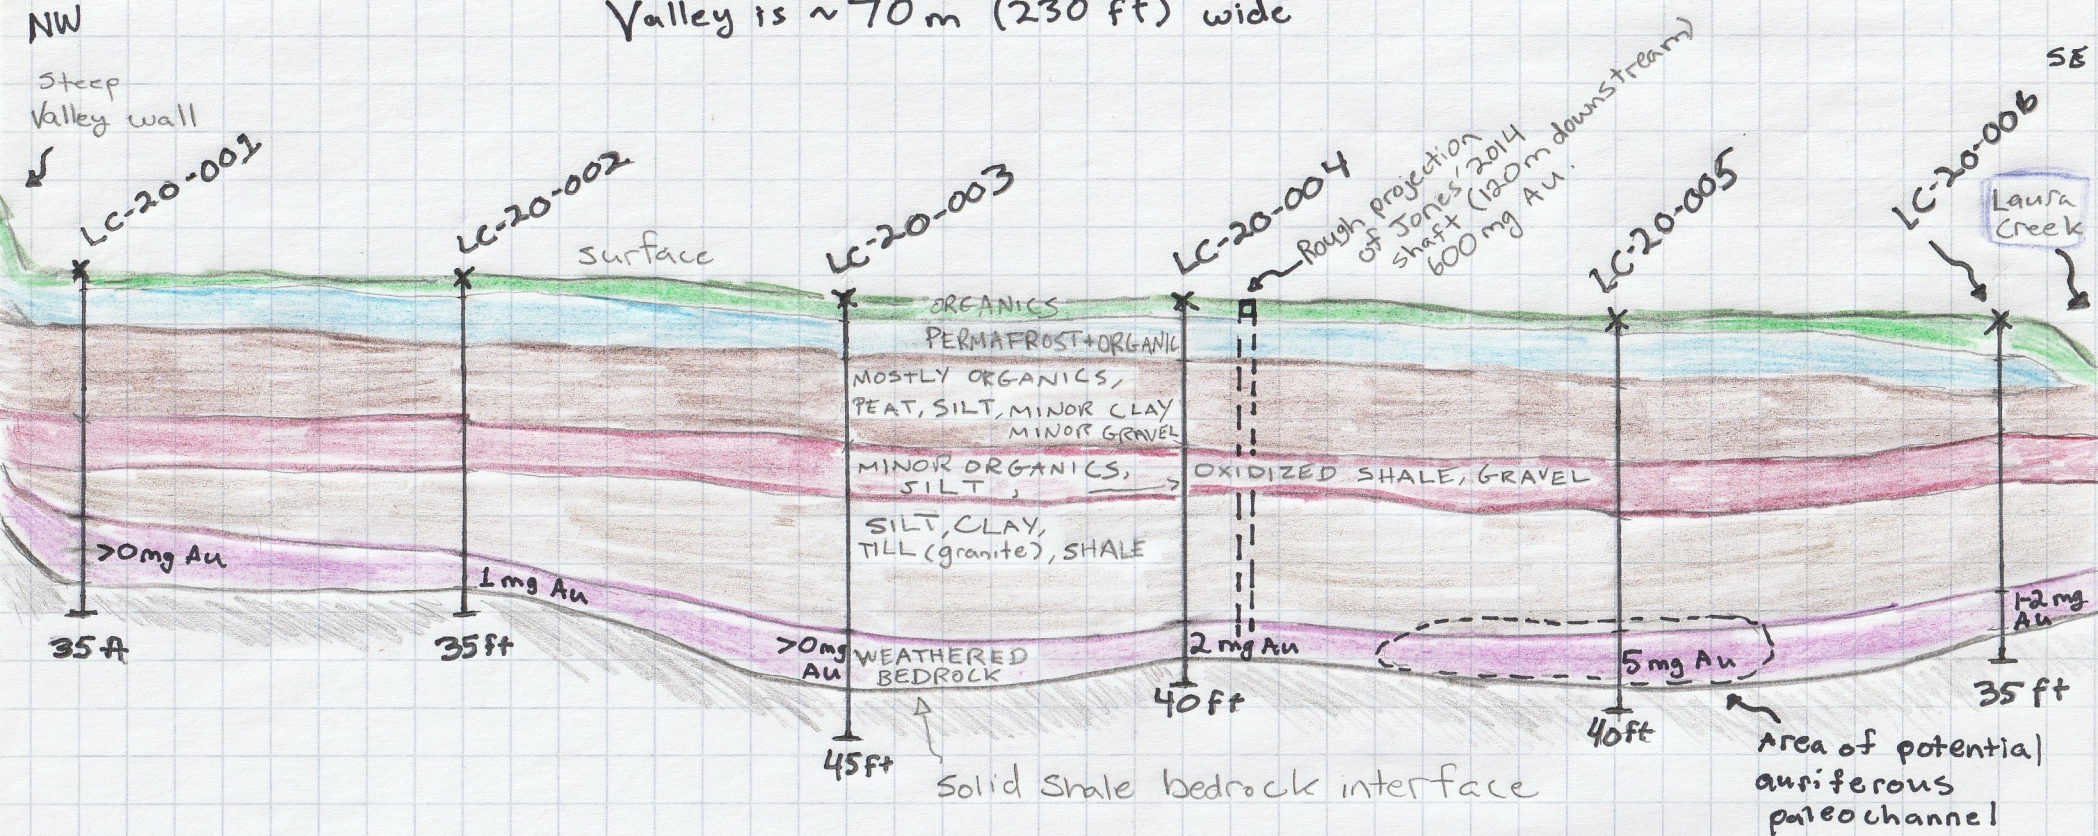 NW
Valley is ~70m (230 ft) wide
SE
Steep
Valley wall
LC-20-001
LC-20-002
LC-20-003
LC-20-004
Rough projection
of Jones' 2014
shaft (120m downstream)
600 mg Au.
LC-20-005
LC-20-006
Laura
Creek
Surface
ORGANICS
PERMAFROST+ORGANIC
MOSTLY ORGANICS,
PEAT, SILT, MINOR CLAY
MINOR GRAVEL
MINOR ORGANICS,
SILT ,
OXIDIZED SHALE, GRAVEL
SILT, CLAY,
TILL (granite), SHALE
>0mg Au
1mg Au
>0mg
Au
WEATHERED
BEDROCK
2 mg Au
5 mg Au
1-2 mg
Au
35 ft
35ft
45ft
40ft
40ft
35 ft
Solid Shale bedrock interface
Area of potential
auriferous
paleochannel